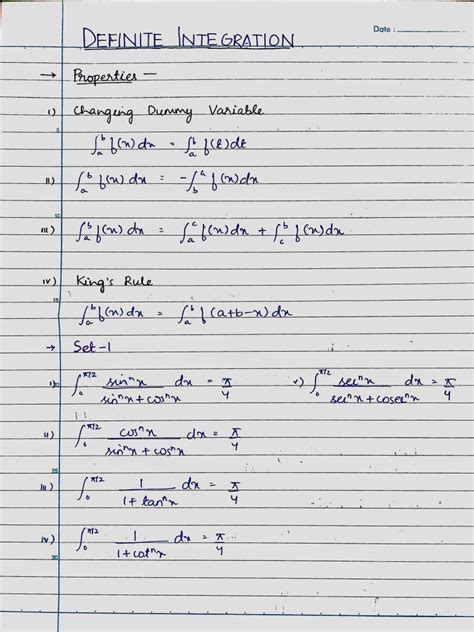 Date :
DEFINITE INTEGRATION
→ Properties —
i) Changing Dummy Variable
∫ₐᵇ f(x) dx = ∫ₐᵇ f(t) dt
ii) ∫ₐᵇ f(x) dx = -∫_b^a f(x) dx
iii) ∫ₐᵇ f(x) dx = ∫_a^c f(x) dx + ∫_c^b f(x) dx
iv) King's Rule
∫ₐᵇ f(x) dx = ∫ₐᵇ f(a+b-x) dx
→ Set-1
i) ∫₀^{π/2} sinⁿx / (sinⁿx + cosⁿx) dx = π/4 v) ∫₀^{π/2} secⁿx / (secⁿx + cosecⁿx) dx = π/4
ii) ∫₀^{π/2} cosⁿx / (sinⁿx + cosⁿx) dx = π/4
iii) ∫₀^{π/2} 1 / (1 + tanⁿx) dx = π/4
iv) ∫₀^{π/2} 1 / (1 + cotⁿx) dx = π/4